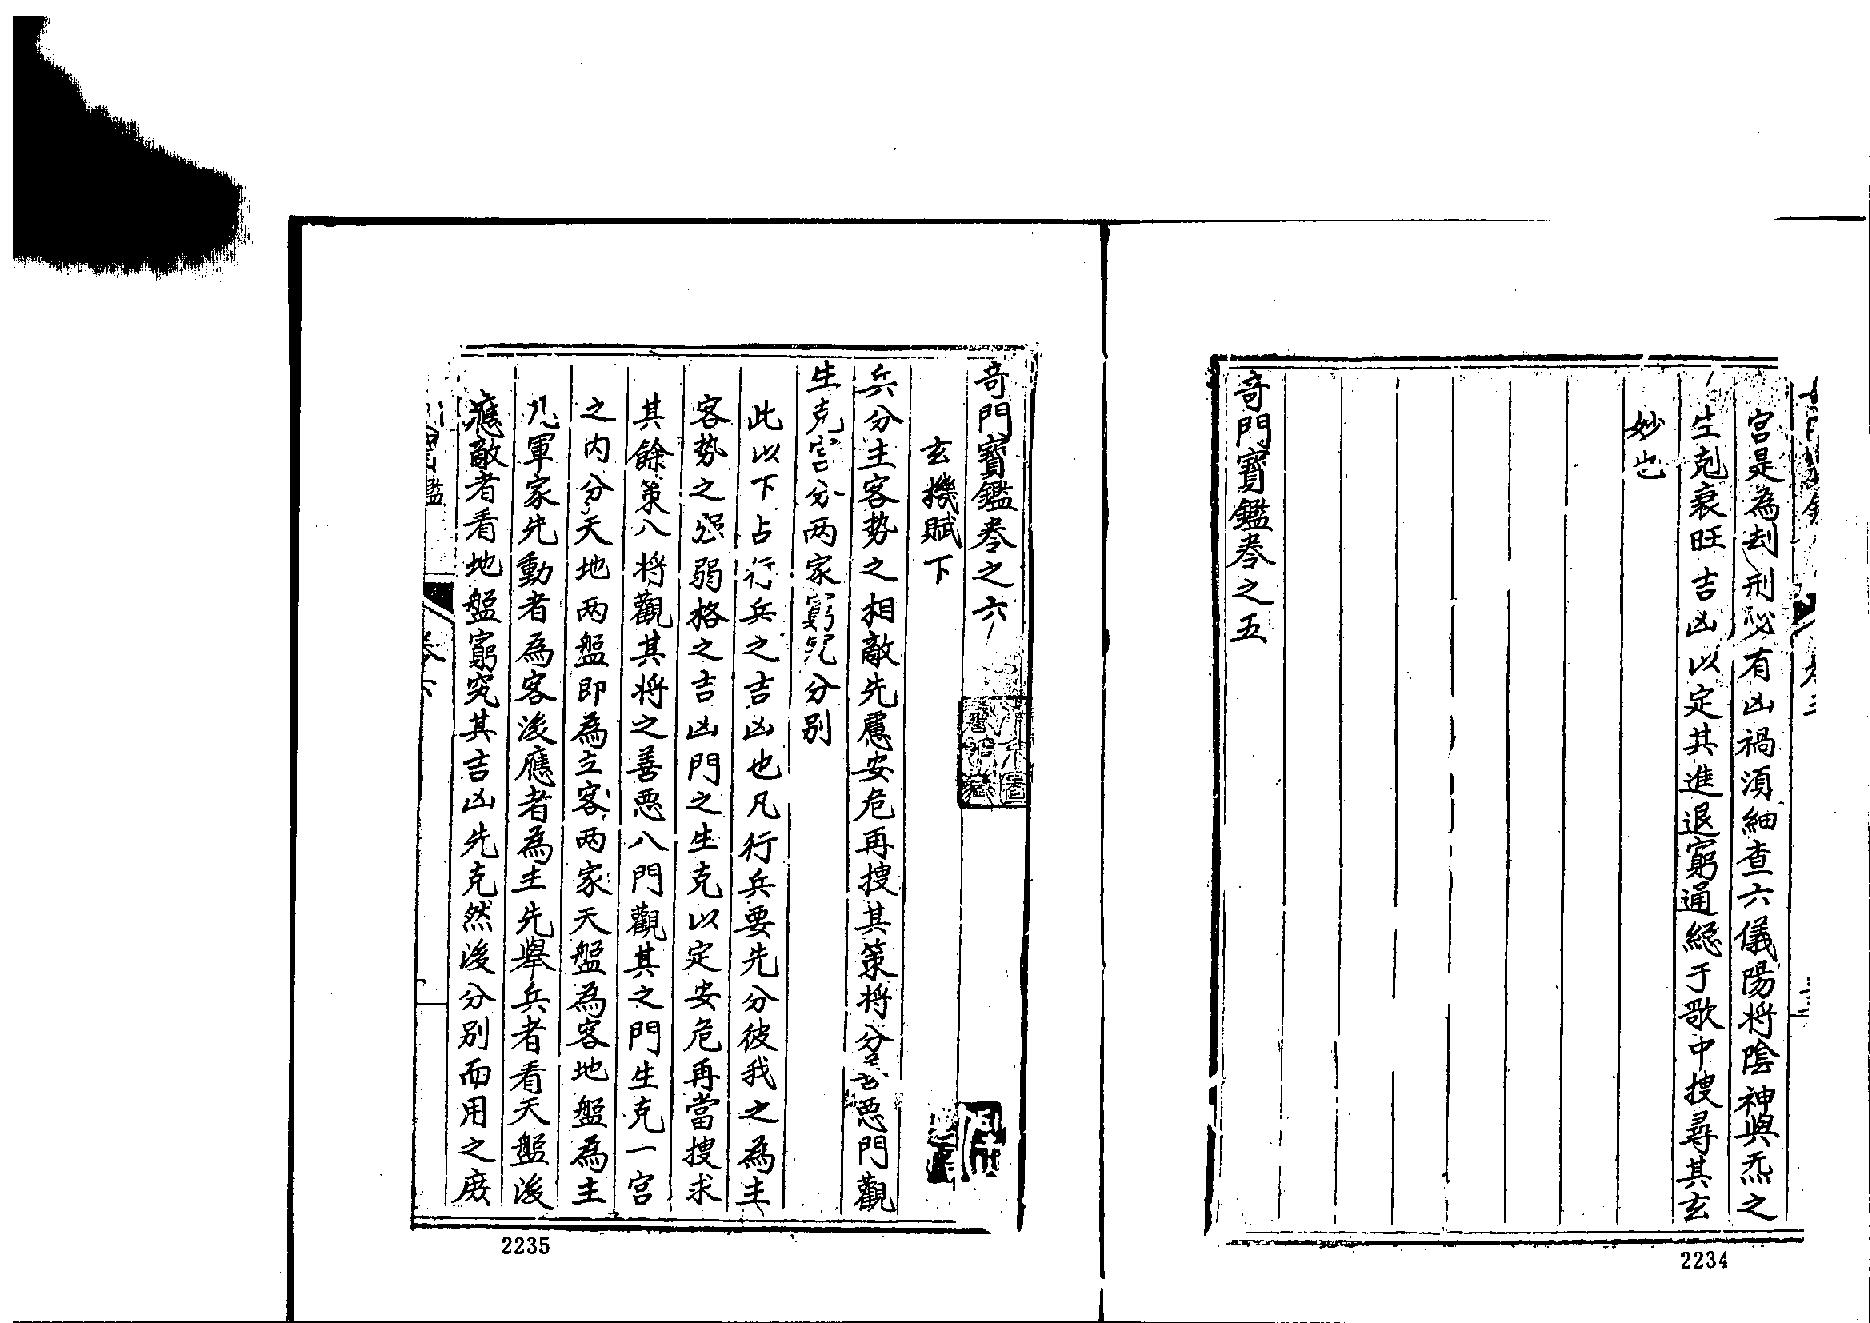 宮是為刦刑必有凶禍須紬查六儀陽將陰神與炁之
生剋衰旺吉凶以定其進退窮通總于歌中搜尋其玄
妙也
奇門寶鑑卷之五
2234
奇門寶鑑卷之六
玄機賦下
兵分主客勢之相敵先慮安危再搜其策將分善惡門觀
生克宮分两家窮究分別
此以下占行兵之吉凶也凡行兵要先分彼我之為主
客勢之强弱格之吉凶門之生克以定安危再當搜求
其餘策八將觀其將之善惡八門觀其之門生克一宮
之内分天地两盤即為主客两家天盤為客地盤為主
凡軍家先動者為客後應者為主先舉兵者看天盤後
應敵者看地盤窮究其吉凶先克然後分別而用之庻
卷六
2235